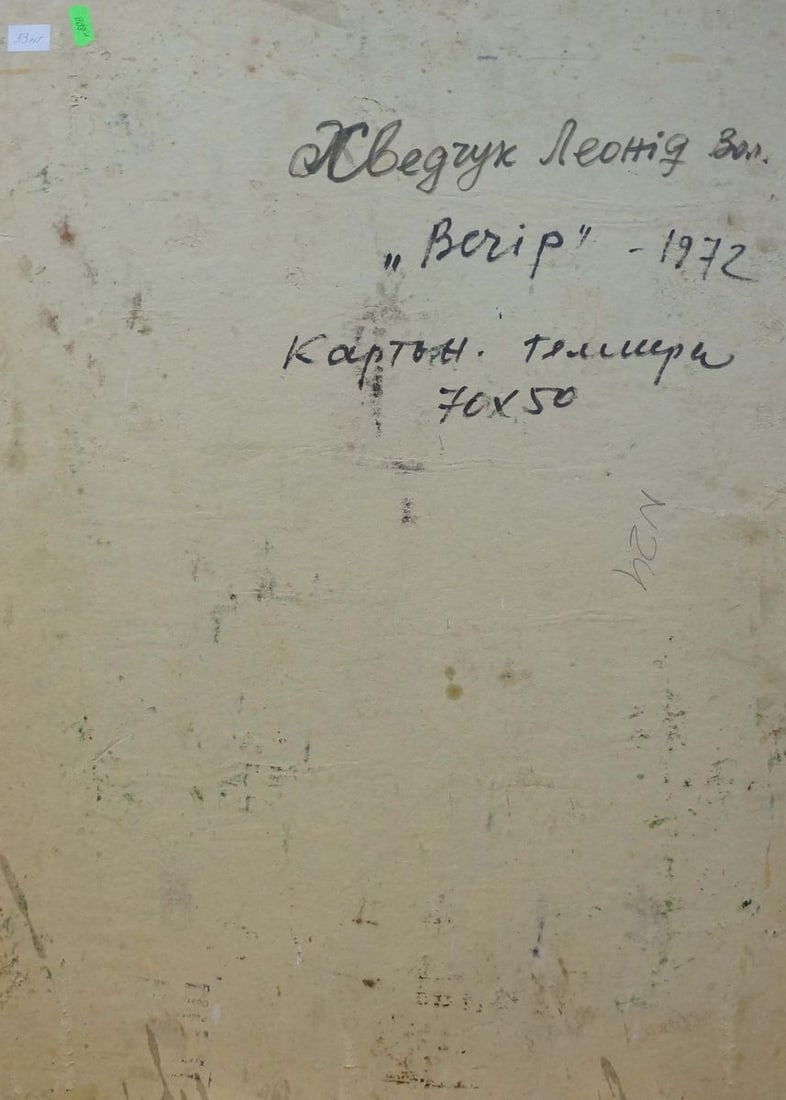 53 нг
Хведчук Леонід Вол.
„Вечір" - 1972
Картон. темпера
70х50
N24